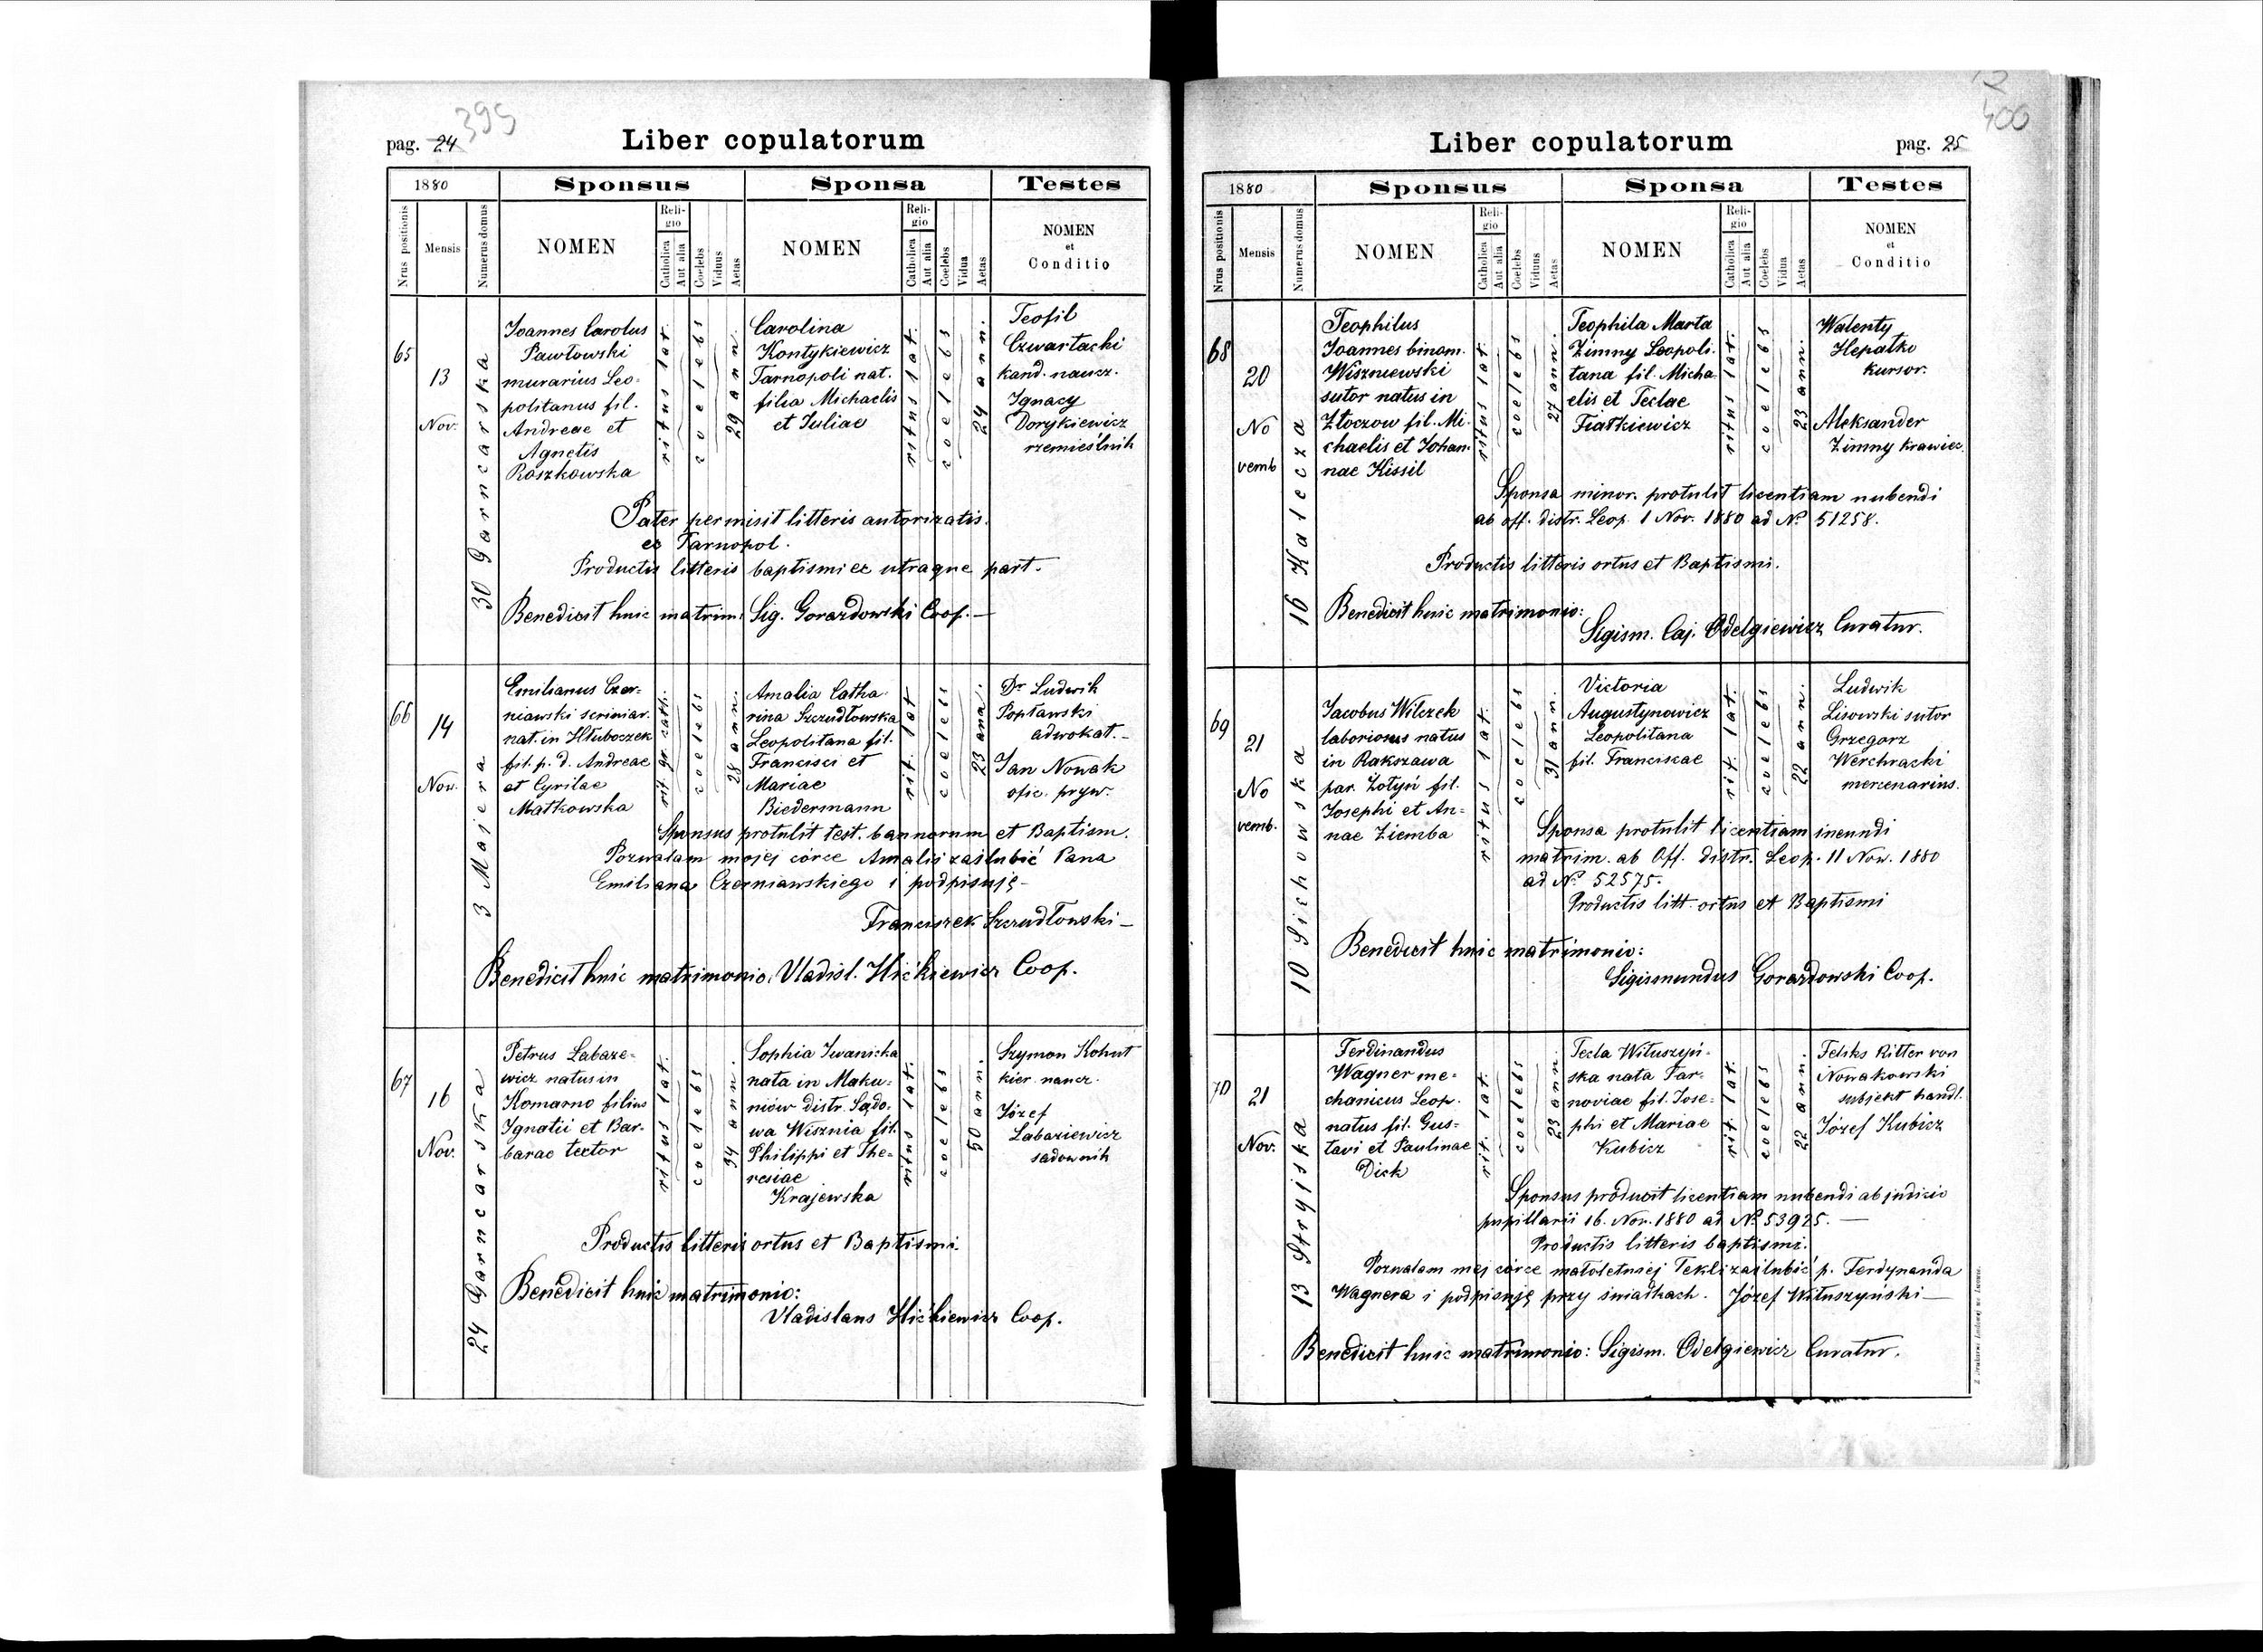 pag. 24 395
Liber copulatorum
1880
Sponsus
Sponsa
Testes
Nrus positionis
Mensis
Numerus domus
NOMEN
Religio
Catholica
Aut alia
Coelebs
Viduus
Aetas
NOMEN
Religio
Catholica
Aut alia
Coelebs
Vidua
Aetas
NOMEN
et
Conditio
65
13
Nov.
30 Garncarska
Joannes Carolus
Pawłowski
murarius Leo-
politanus fil.
Andreae et
Agnetis
Roszkowska
ritus lat.
coelebs
29 ann.
Carolina
Kontykiewicz
Tarnopoli nat.
filia Michaelis
et Juliae
ritus lat.
coelebs
24 ann.
Teofil
Czwartacki
kand. naucz.
Ignacy
Dorykiewicz
rzemieślnik
Pater permisit litteris autorizatis
ec Tarnopol.
Productis litteris baptismi ec utraque part.
Benedicit huic matrim: Sig. Gorazdowski Coop.—
66
14
Nov.
3 Majera
Emilianus Czer-
niawski scriniar.
nat. in Hłuboczek
fil. p. d. Andreae
et Cyrilae
Matkowska
rit. gr. cath.
coelebs
28 ann.
Amalia Catha-
rina Szczudłowska
Leopolitana fil.
Francisci et
Mariae
Biedermann
rit. lat
coelebs
23 ann.
Dr Ludwik
Popławski
adwokat.-
Jan Nowak
ofic. pryw.
Sponsus protulit test. bannorum et Baptism.
Pozwalam mojej córce Amalij zaślubić Pana
Emiliana Czerniawskiego i podpisuję-
Franciszek Szczudłowski—
Benedicit huic matrimonio: Vladisl. Hićkiewicz Coop.
67
16
Nov.
24 Garncarska
Petrus Labaze-
wicz natus in
Komarno filius
Ignatii et Bar-
barae tector
ritus lat.
coelebs
34 ann.
Sophia Iwanicka
nata in Maku-
niów distr. Sądo-
wa Wisznia fil.
Philippi et The-
resiae
Krajewska
ritus lat.
coelebs
50 ann.
Szymon Kohut
kier. naucz.
Józef
Labaziewicz
sadownik
Productis litteris ortus et Baptismi.
Benedicit huic matrimonio:
Vladislaus Hićkiewicz Coop.
400
Liber copulatorum
pag. 25
1880
Sponsus
Sponsa
Testes
Nrus positionis
Mensis
Numerus domus
NOMEN
Religio
Catholica
Aut alia
Coelebs
Viduus
Aetas
NOMEN
Religio
Catholica
Aut alia
Coelebs
Vidua
Aetas
NOMEN
et
Conditio
68
20
No
vemb
16 Kalecza
Teophilus
Joannes binom.
Wiszniewski
sutor natus in
Złoczow fil. Mi-
chaelis et Johan-
nae Kissil
ritus lat.
coelebs
27 ann.
Teophila Marta
Zimny Leopoli-
tana fil. Micha-
elis et Teclae
Fiałkiewicz
ritus lat.
coelebs
23 ann.
Walenty
Hepatko
kursor.
Aleksander
Zimny krawiec.
Sponsa minor. protulit licentiam nubendi
ab off. distr. Leop. 1 Nov. 1880 ad No 51258.
Productis litteris ortus et Baptismi.
Benedicit huic matrimonio:
Sigism. Caj. Odelgiewicz Curatur.
69
21
No
vemb.
10 Sichowska
Jacobus Wilczek
laboriosus natus
in Rakszawa
par. Żołyń fil.
Josephi et An-
nae Ziemba
ritus lat.
coelebs
31 ann.
Victoria
Augustynowicz
Leopolitana
fil. Franciscae
rit. lat.
coelebs
22 ann.
Ludwik
Lisowski sutor
Grzegorz
Werchracki
mercenarius.
Sponsa protulit licentiam ineundi
matrim. ab Off. distr. Leop. 11 Now. 1880
ad No 52575.
Productis litt. ortus et Baptismi
Benedicit huic matrimonio:
Sigismundus Gorazdowski Coop.
70
21
Nov.
13 Stryjska
Ferdinandus
Wagner me-
chanicus Leop.
natus fil. Gus-
tavi et Paulinae
Dick
rit. lat.
coelebs
23 ann.
Tecla Wituszyń-
ska nata Tar-
noviae fil. Jose-
phi et Mariae
Kubicz
rit. lat.
coelebs
22 ann.
Feliks Ritter von
Nowakowski
subjekt handl.
Józef Kubicz
Sponsus producit licentiam nubendi ab judicio
pupillarii 16. Nov. 1880 ad No 53925.—
Productis litteris baptismi.
Pozwalam mej córce małoletniej Tekli zaślubić p. Ferdynanda
Wagnera i podpisuję przy świadkach. Józef Wituszyński—
Benedicit huic matrimonio: Sigism. Odelgiewicz Curatur.